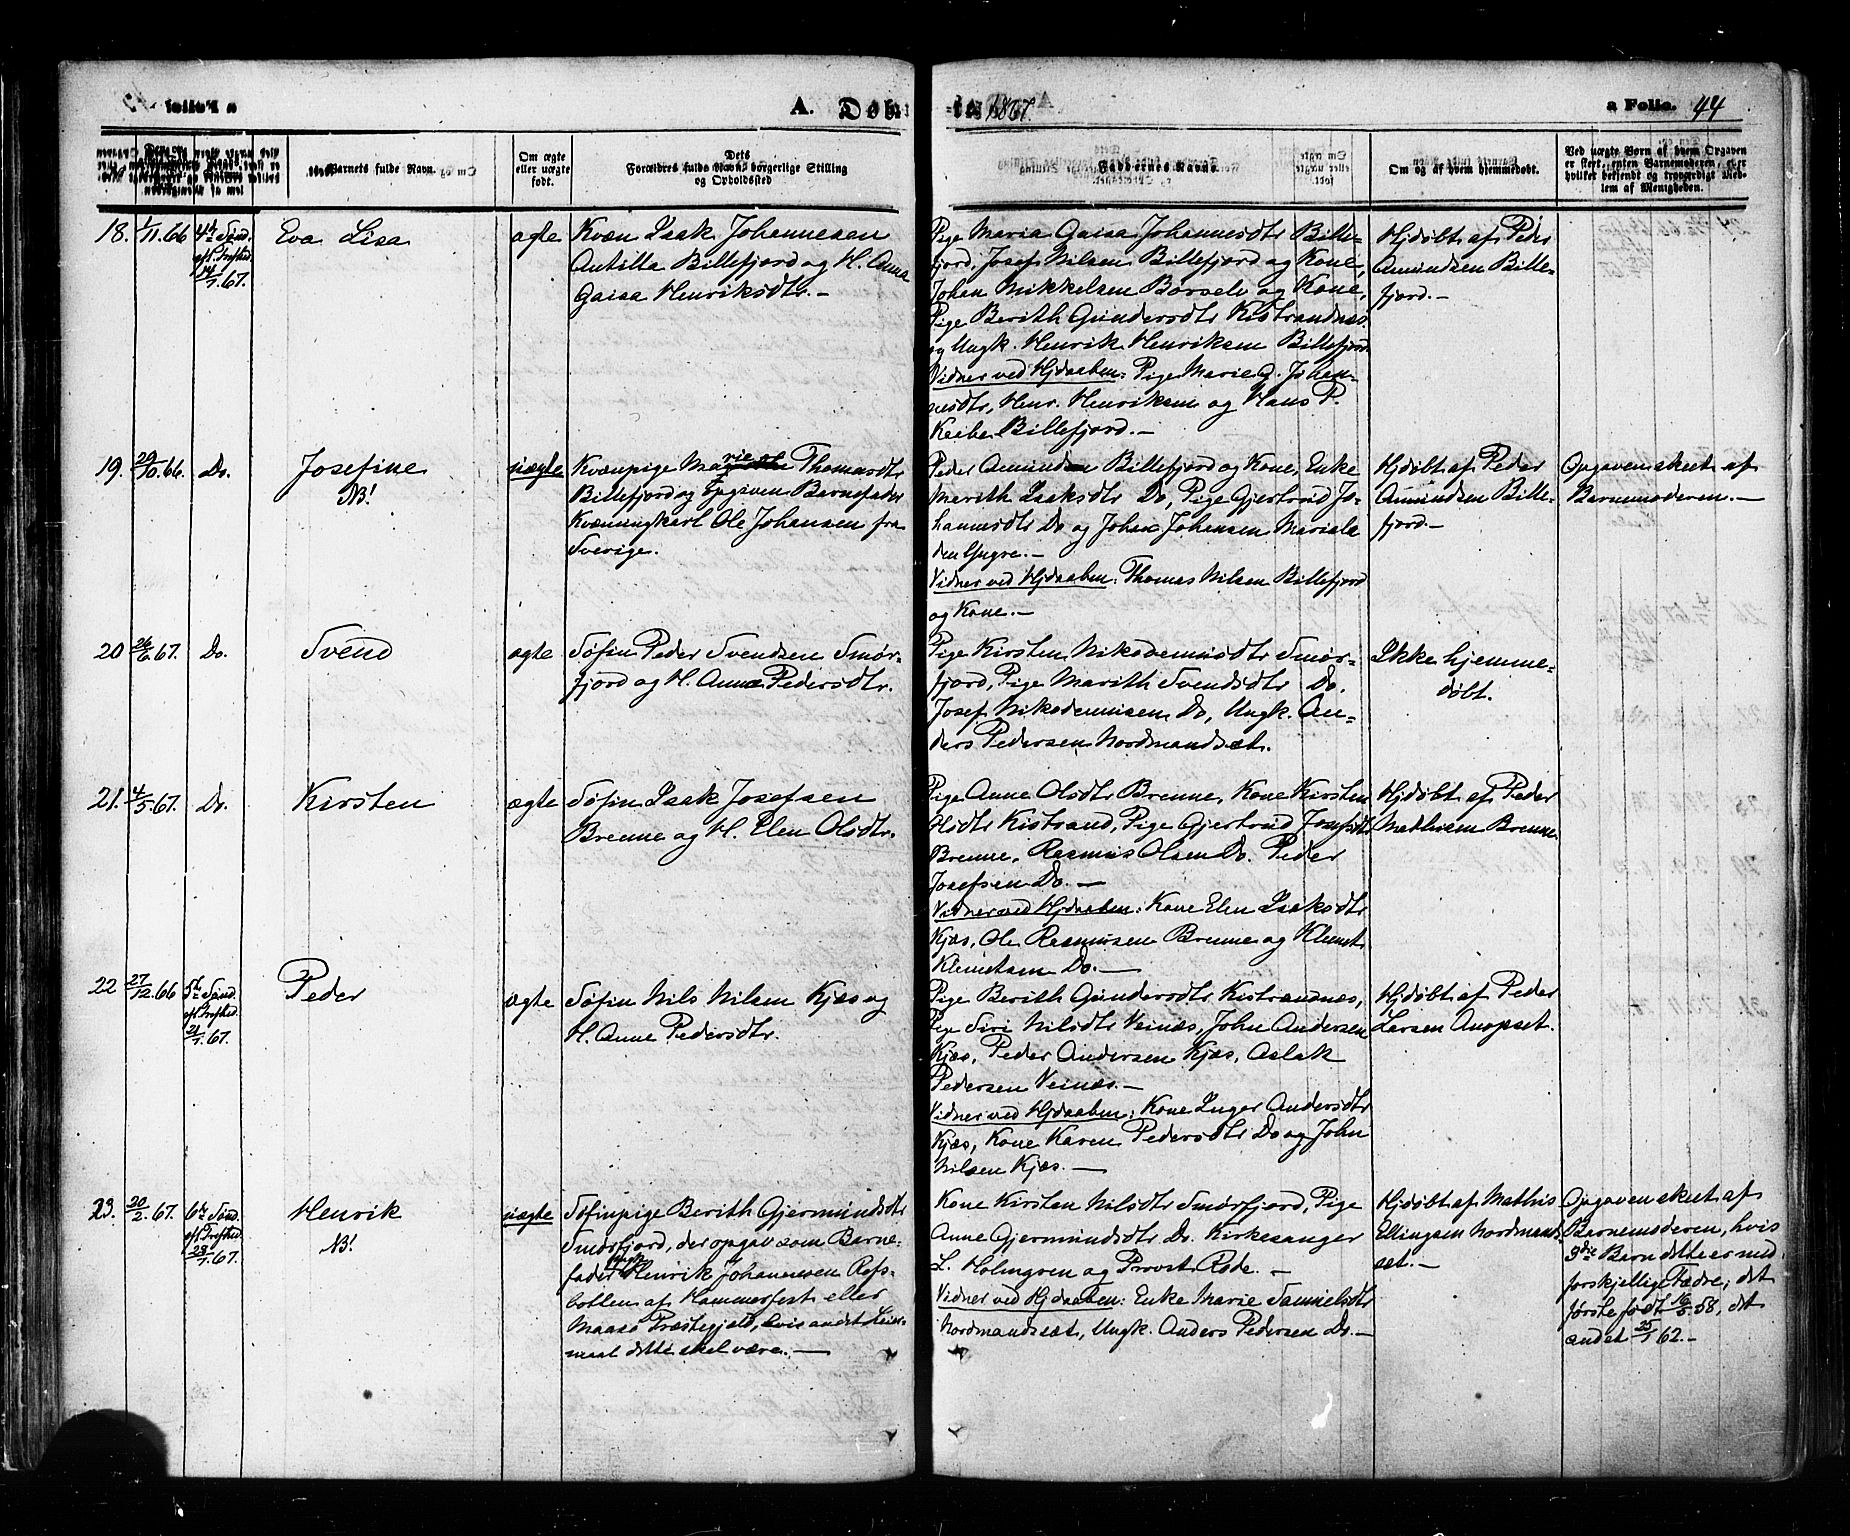 A. Døb-
te 1867.
a Folio. 44
Barnets fulde Navn.
Om ægte
eller uægte
født.
Dets
Forældres fulde Navn, borgerlige Stilling
og Opholdssted
Faddernes Navne.
Om og af hvem hjemmedøbt.
Ved uægte Børn af hvem Opgaven
er skeet, enten Barnemoderen, eller
hvilket bekjendt og troværdigt Med-
lem af Menigheden.
18. 1/11.66 4de Sønd.
eft. Trefhed.
14/7.67.
Eva Lisa
ægte
Kvæn Isak Johannesen
Antilla Billefjord og H. Anna
Gaisa Henriksdtr.-
Pige Maria Gaisa Johannesdtr Bille-
fjord, Josef Nilsen Billefjord og Kone,
Johan Mikkelsen Børselv og Kone,
Pige Berith Gundersdtr Kistrandnæs
og Ungk. Henrik Henriksen Billefjord
Vidner ved Hjdaaben: Pige Marie G. Johan-
nesdtr, Henr. Henriksen og Hans P.
Billefjord.-
Hjdøbt af Peder
Amundsen Bille-
fjord.-
19. 29/10.66. Do.
Josefine
NB!
uægte
Kvænpige Marie Thomasdtr
Billefjord og opgiven Barnefader
Kvænungkarl Ole Johansen fra
Sverige.
Peder Amundsen Billefjord og Kone, Enke
Marith Isaksdtr Do, Pige Gjertrud Jo-
hannesdtr Do og Johan Johansen
den Yngre.-
Vidner ved Hjdaaben: Thomas Nilsen Billefjord
og Kone.-
Hjdøbt af Peder
Amundsen Bille-
fjord.-
Opgaven skeet af
Barnemoderen.-
20 26/6.67. Do.
Svend
ægte
Søfin Peder Svendsen Smør-
fjord og H. Anna Pedersdtr.
Pige Kirsten Nikodemusdtr Smør-
fjord, Pige Marith Svendsdtr Do.
Josef Nikodemusen Do, Ungk. An-
ders Pedersen Nordmandsæt.
Ikke hjemme-
døbt.
21. 4/5.67. Do.
Kirsten
ægte
Søfin Isak Josefsen
Brenne og H. Elen Olsdtr.
Pige Anne Olsdtr Brenne, Kone Kirsten
Olsdtr Kistrand, Pige Gjertrud Josefsdtr
Brenne, Rasmus Olsen Do. Peder
Josefsen Do.-
Vidner ved Hjdaaben: Kone Elen Isaksdtr
Kjæs, Ole Rasmusen Brenne og Klemet
Klemetsen Do.-
Hjdøbt af Peder
Mathisen Brenne
22 27/12.66 5te Sønd.
eft. Trefhed.
21/7.67.
Peder
ægte
Søfin Nils Nilsen Kjæs og
H. Anne Pedersdtr.
Pige Berith Gundersdtr Kistrandnæs,
Pige Siri Nilsdtr Veinæs, John Andersen
Kjæs, Peder Andersen Kjæs, Aslak
Pedersen Veinæs.-
Vidner ved Hjdaaben: Kone Inger Andersdtr
Kjæs, Kone Karen Pedersdtr Do og John
Nilsen Kjæs.-
Hjdøbt af Peder
Larsen Anopset.
23. 20/2.67. 6te Sønd.
eft. Trefhed
28/7.67.
Henrik
NB!
uægte
Søfinpige Berith Gjermundsdtr
Smørfjord, der opgav som Barne-
fader Ungk. Henrik Johannesen Refs-
botten af Hammerfest eller
Maasø Præstegjeld, hvis andet Leier-
maal dette skal være.-
Kone Kirsten Nilsdtr Smørfjord, Pige
Anne Gjermundsdtr Do. Kirkesanger
L. Holmgren og Provst Rode.-
Vidner ved Hjdaaben: Enke Marie Samuelsdtr
Nordmandsæt, Ungk. Anders Pedersen Do.-
Hjdøbt af Mathis
Ellingsen Nordmand-
sæt.-
Opgaven skeet af
Barnemoderen, hvis
3die Barn dette er med
forskjellige Fædre; det
første født 16/5.58, det
andet 25/1 62.-